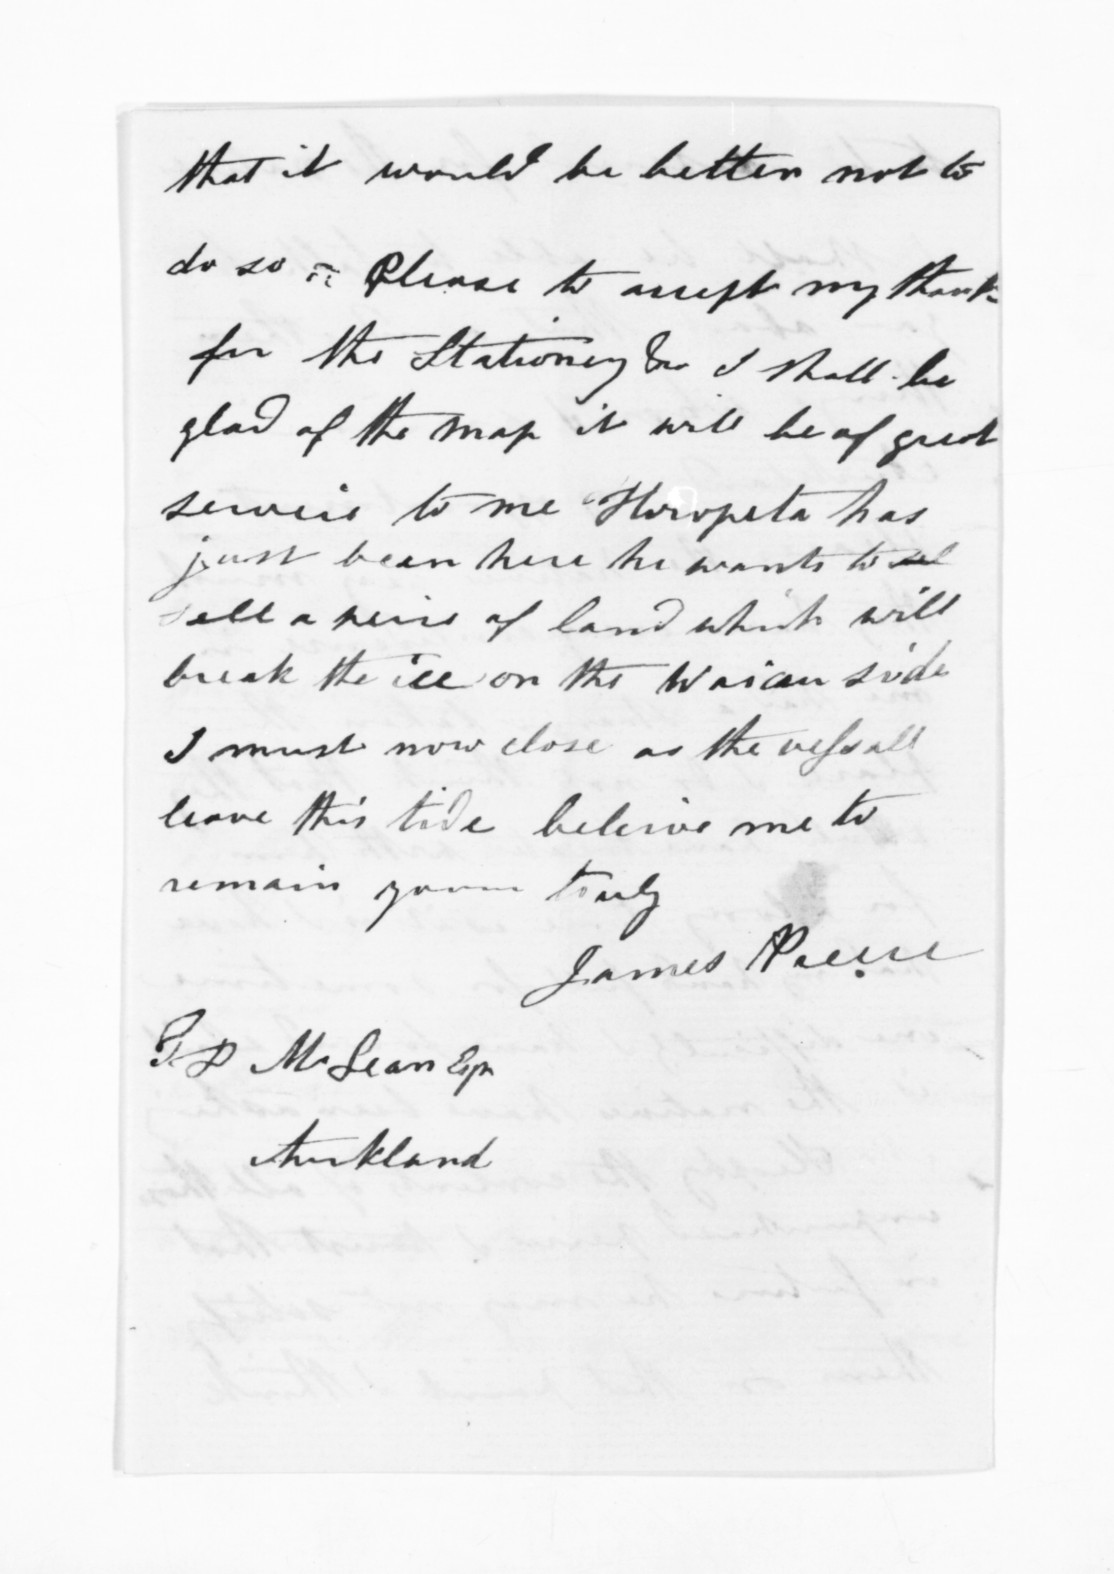 that it would be better not to
do so = Please to accept my thanks
for the Stationey &c I shall be
glad of the map it will be of great
serveice to me Horopeta has
just bean here he wants to sel
sell a peice of land which will
break the ice on the Waiau side
I must now close as the vessall
leave this tide beleive me to
remain yours truly
James
McLean Esqr
Auckland